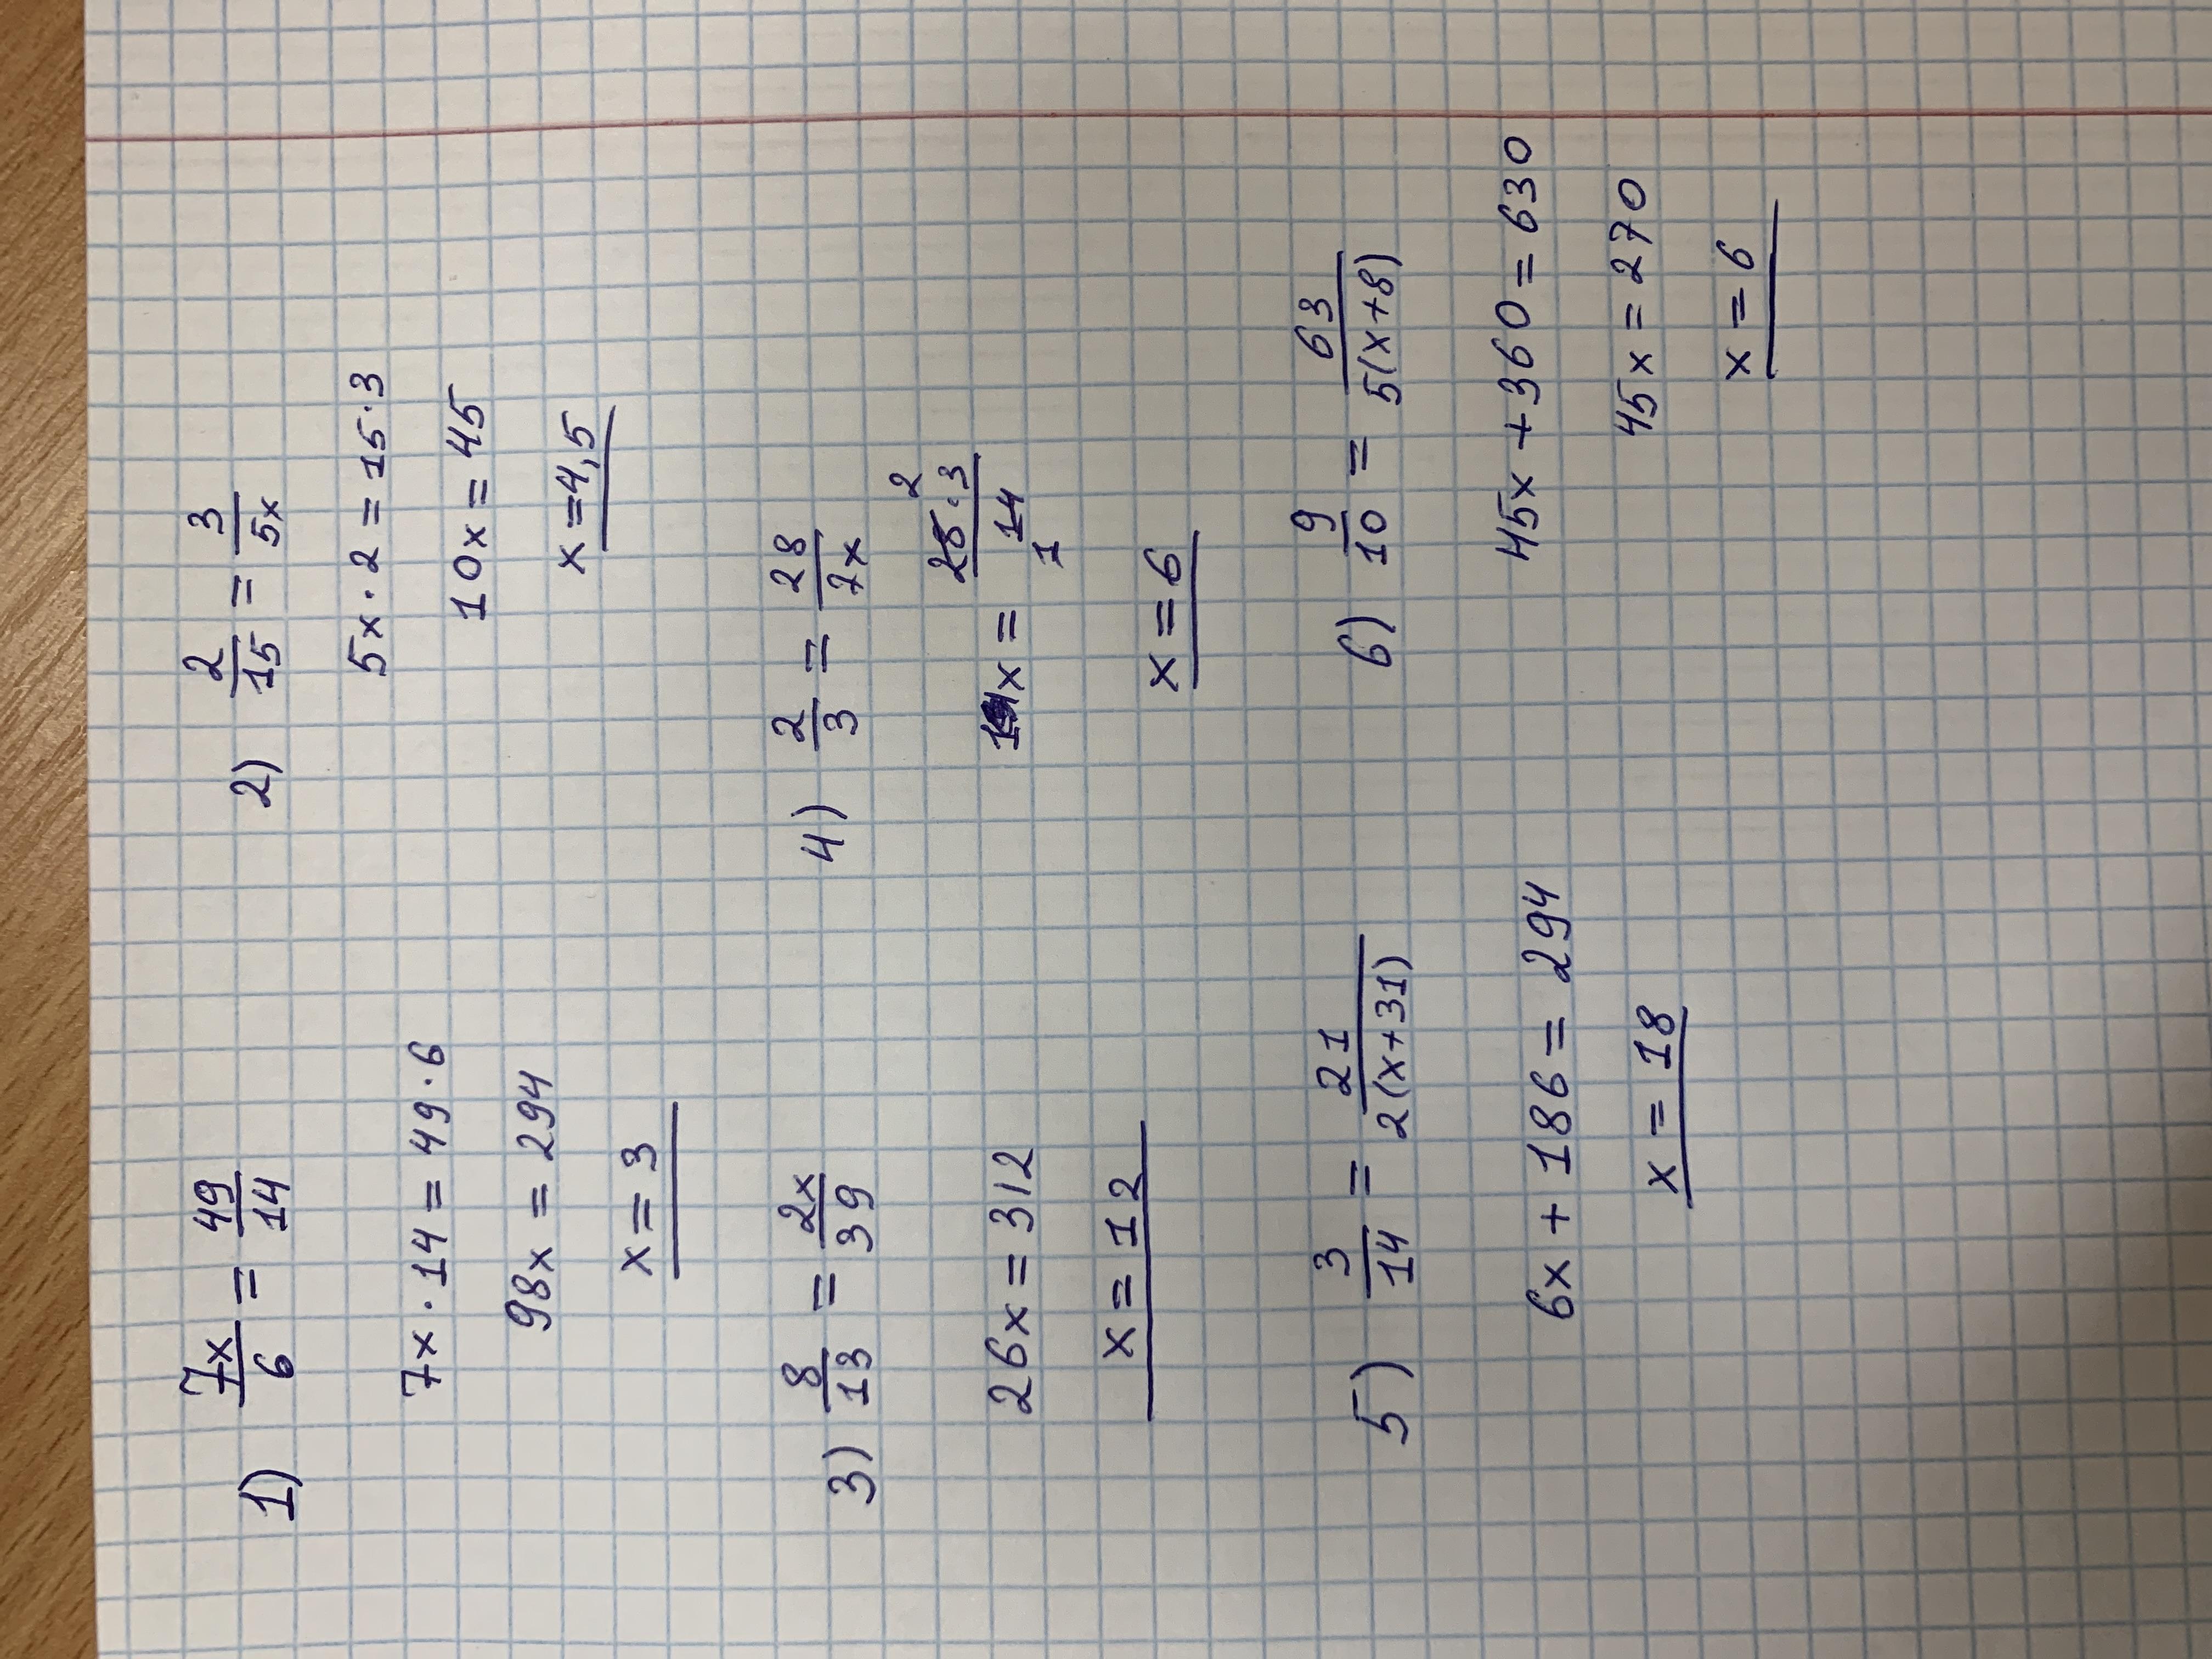 1) 7x/6 = 49/14
7x · 14 = 49 · 6
98x = 294
x = 3
2) 2/15 = 3/5x
5x · 2 = 15 · 3
10x = 45
x = 4,5
3) 8/13 = 2x/39
26x = 312
x = 12
4) 2/3 = 28/7x
x = 28 2 · 3 / 14 1
x = 6
5) 3/14 = 21/2(x+31)
6x + 186 = 294
x = 18
6) 9/10 = 63/5(x+8)
45x + 360 = 630
45x = 270
x = 6